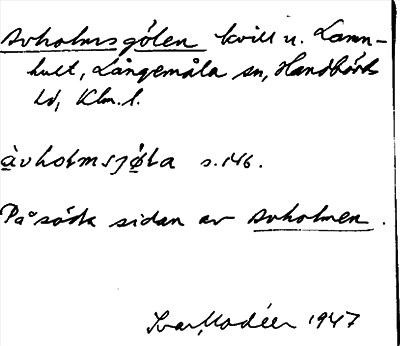 Avholmsgölen kvill u. Lamm-
hult, Långemåla sn, Handbörds
hd, Klm. l.
àvholmsjø̀la s. 146.
På södra sidan av Avholmen.
Ivar Modéer 1947